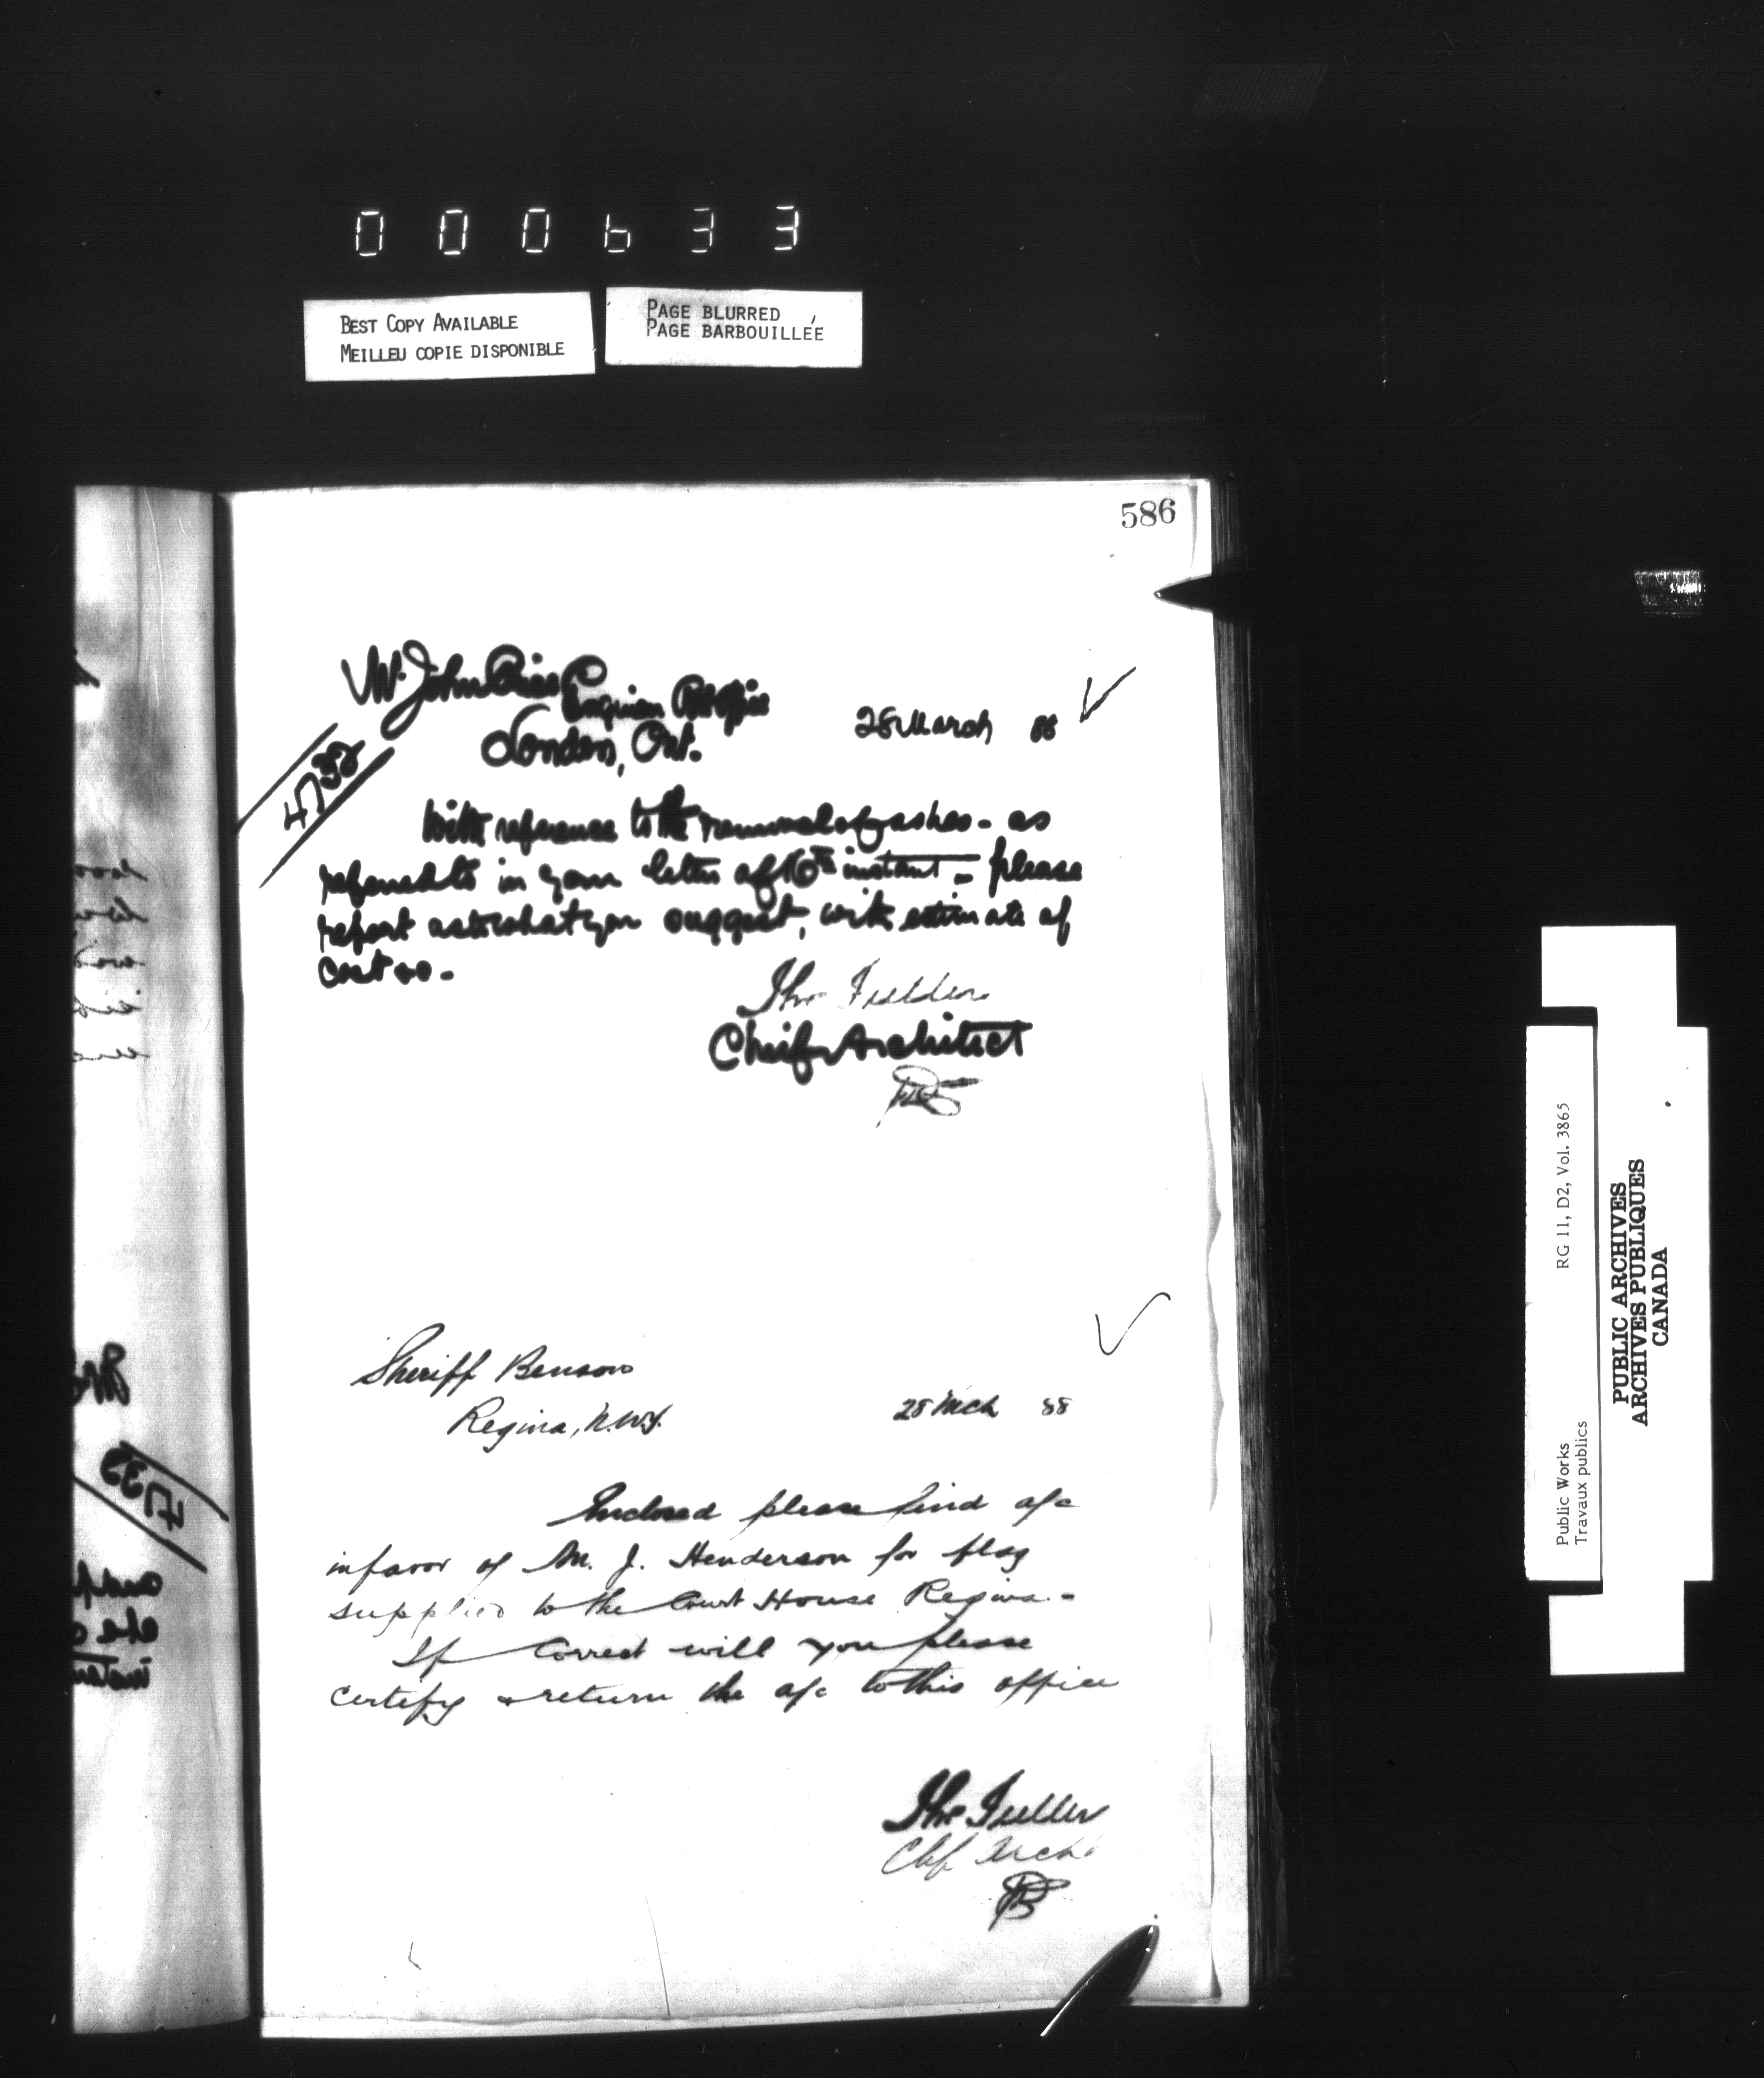 000633
BEST COPY AVAILABLE
MEILLEU COPIE DISPONIBLE
PAGE BLURRED
PAGE BARBOUILLÉE
586
Mr. John
London, Ont.
28 March 88
4732
With reference to the removal of ashes - as
referred to in your letter of 16th instant - please
report as to what you suggest, with estimate of
cost &c.
Thos Fuller
Chief Architect
Sheriff Benson
Regina, N.W.T.
28 Mch 88
Enclosed please find a/c
in favor of M. J. Henderson for flag
supplied to the Court House Regina. -
If Correct will you please
certify & return the a/c to this office
Thos Fuller
Chf Arch.
Public Works
Travaux publics
RG 11, D2, Vol. 3865
PUBLIC ARCHIVES
ARCHIVES PUBLIQUES
CANADA